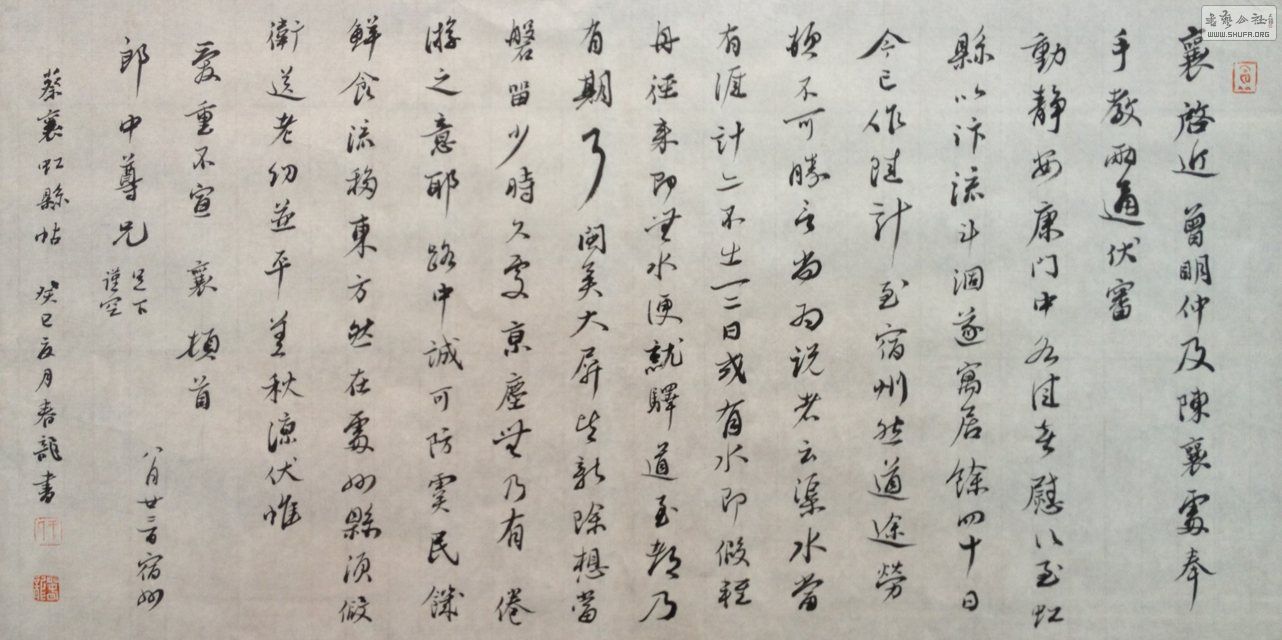 襄啓近曾明仲及陳襄處奉
手教兩通伏審
動靜安康門中各佳喜慰以至虹
縣以汴流斗涸遂寓居餘四十日
今已作陸計至宿州然道途勞
頓不可勝言尚為說者云渠水當
有涯計亦不出一二日或有水即假輕
舟徑來即無水便就驛道至都乃
有期了閩吴大屏皆新除想當
磐留少時久處京塵無乃有倦
游之意耶路中誠可防雲民饑
鮮食流移東方然在處州縣須假
衛送老幼並平善秋涼伏惟
愛重不宣 襄頓首
郎中尊兄足下
謹空
八月廿二日宿州
蔡襄虹縣帖 癸巳
月春龍書
WWW.SHUFA.ORG